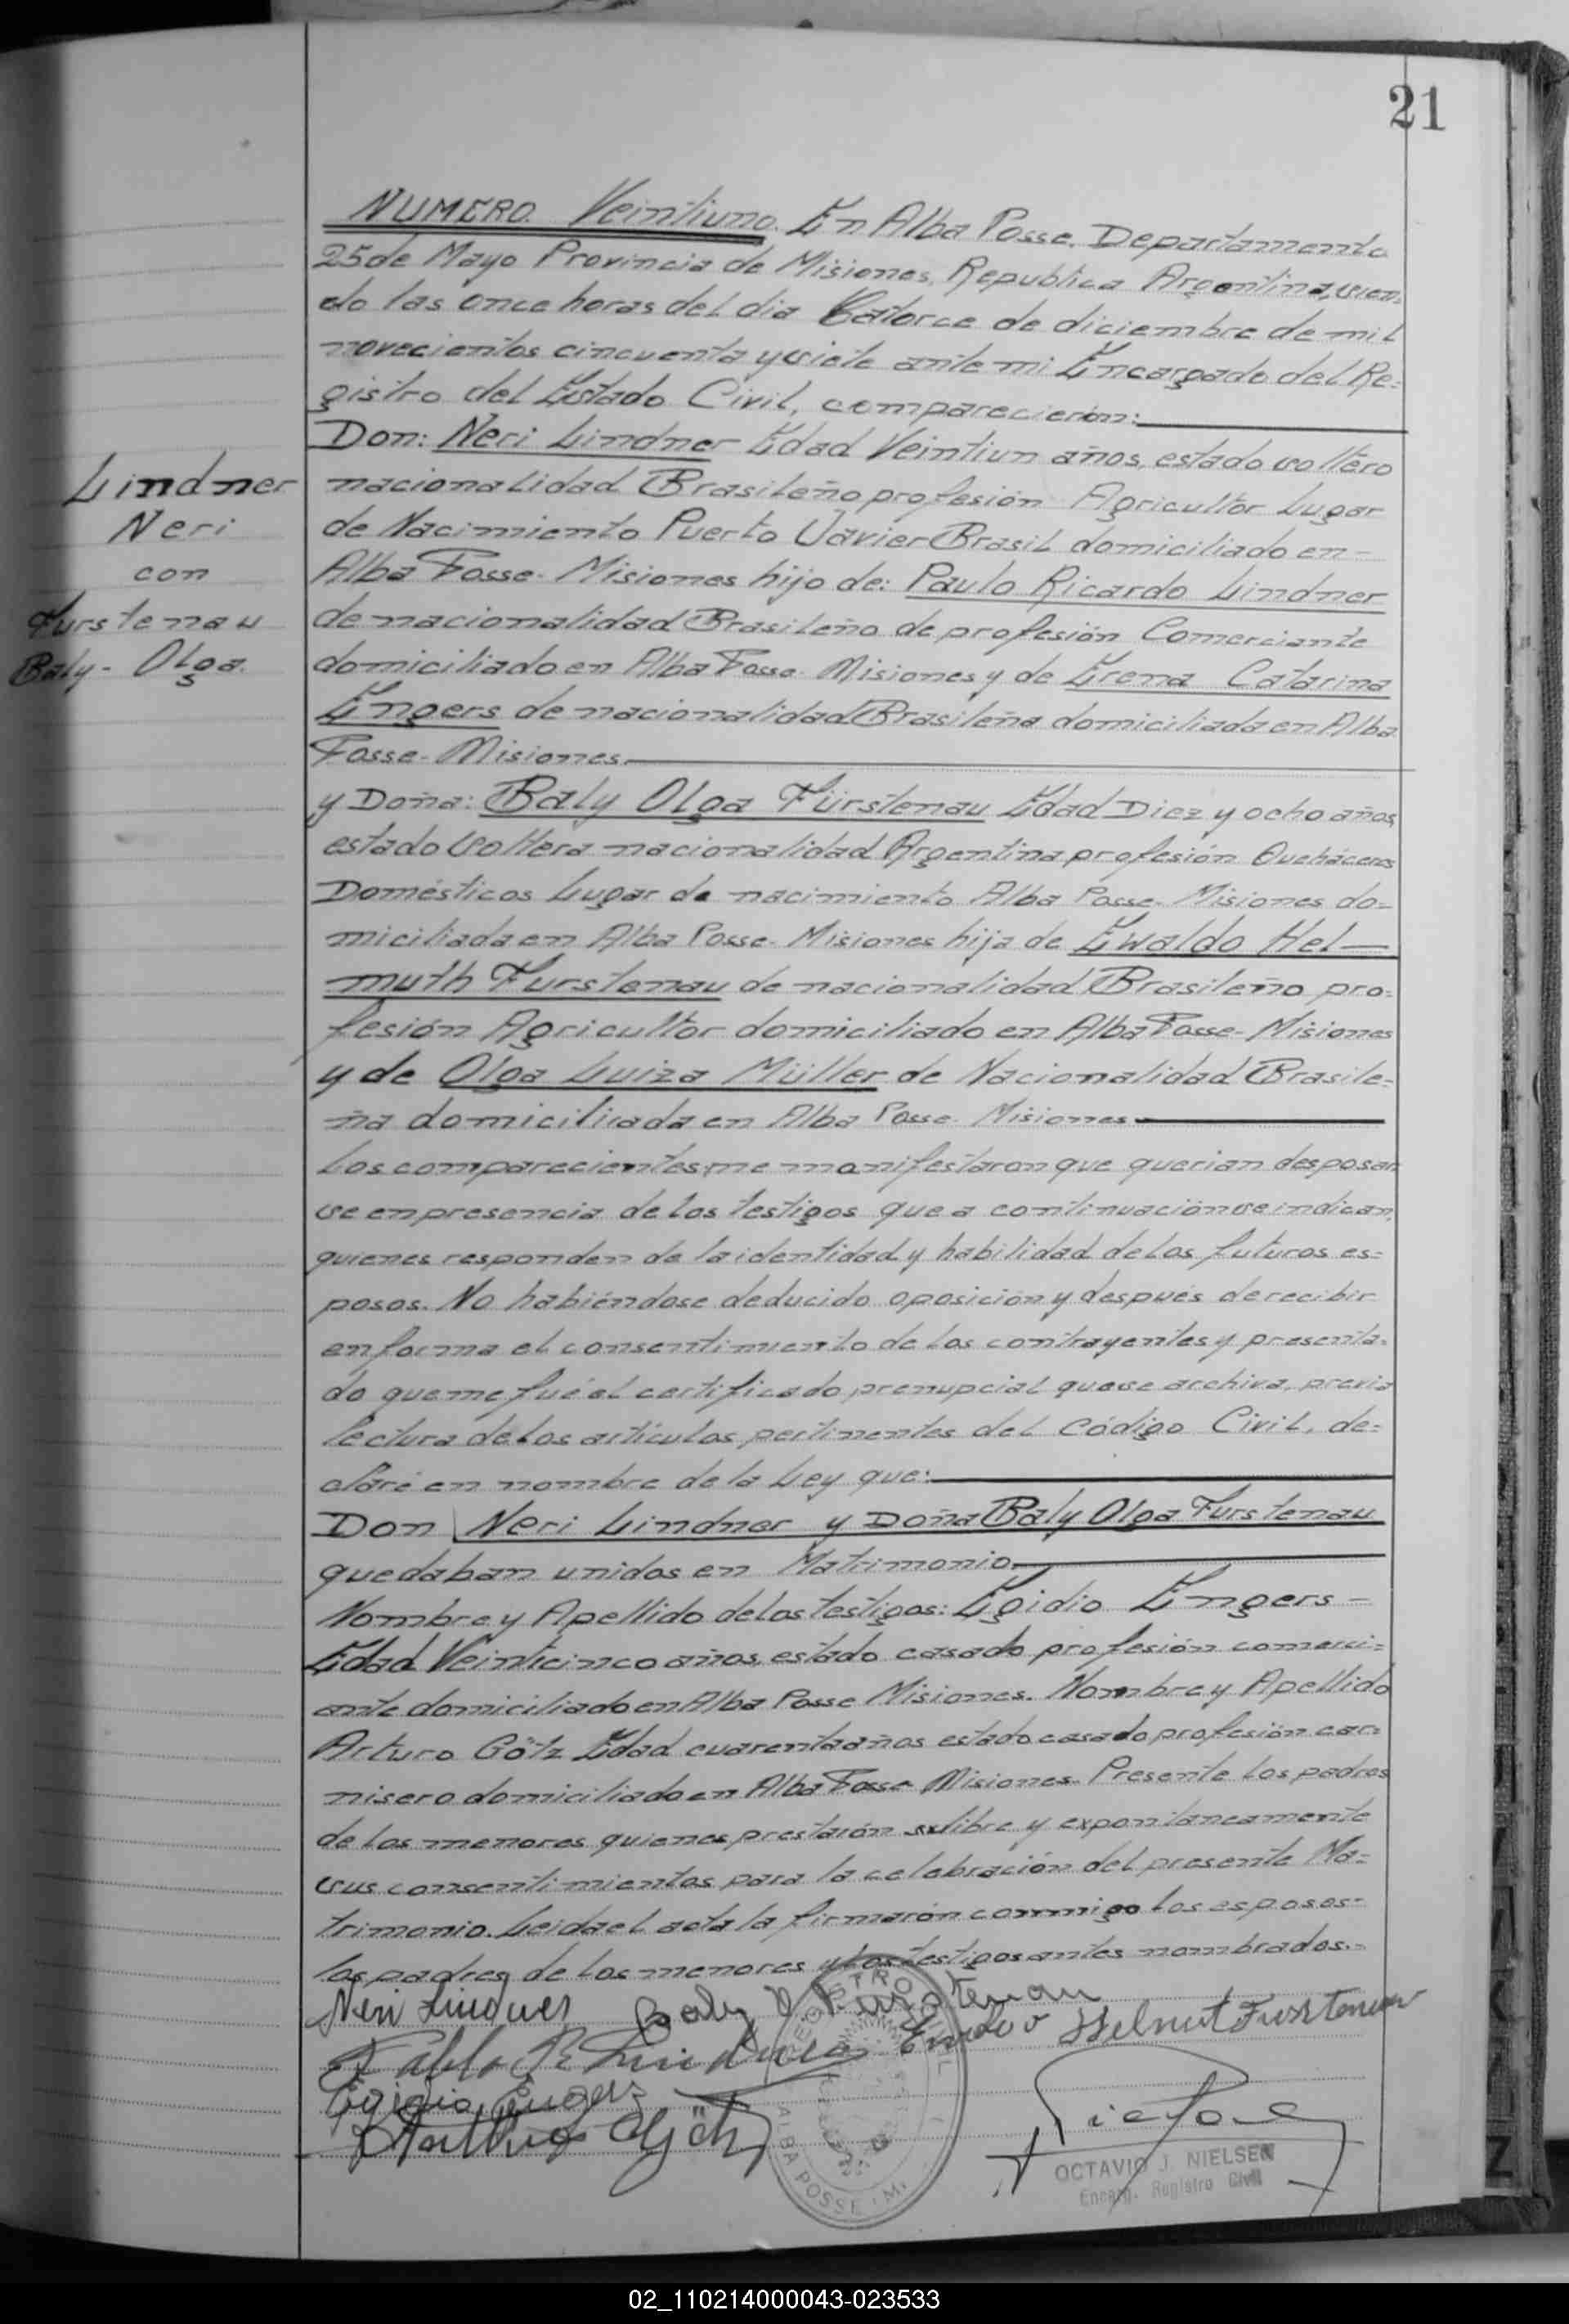 21
NUMERO. Veintiuno. En Alba Posse. Departamento
25 de Mayo Provincia de Misiones, Republica Argentina, sien-
do las once horas del dia Catorce de diciembre de mil
novecientos cincuenta y siete ante mi Encargado del Re=
gistro del Estado Civil, comparecierón:
Don: Neri Lindner Edad Veintiun años, estado soltero
nacionalidad Brasileño profesión Agricultor Lugar
de Nacimiento Puerto Javier Brasil domiciliado en-
Alba Posse- Misiones hijo de: Paulo Ricardo Lindner
de nacionalidad Brasileño de profesión Comerciante
domiciliado en Alba Posse- Misiones y de Erena Catarina
Engers de nacionalidad Brasileña domiciliada en Alba
Posse- Misiones.
Lindner
Neri
con
Furstenau
Baly- Olga.
y Doña: Baly Olga Fürstenau Edad Diez y ocho años,
estado Soltera nacionalidad Argentina profesión Quehaceres
Domésticos Lugar de nacimiento Alba Posse- Misiones do-
miciliada en Alba Posse- Misiones hija de Ewaldo Hel-
muth Furstenau de nacionalidad Brasileño pro-
fesión Agricultor domiciliado en Alba Posse- Misiones
y de Olga Luiza Müller de Nacionalidad Brasile=
ña domicilicada en Alba Posse- Misiones
Los comparecientes me manifestaron que querian desposar
se en presencia de los testigos que a continuación se indican,
quienes responden de la identidad y habilidad de los futuros es=
posos. No habiéndose deducido oposición y después de recibir
en forma el consentimiento de los contrayentes y presenta-
do que me fué el certificado prenupcial que se archiva, previa
lectura de los artículos pertinentes del Código Civil, de=
claré en nombre de la Ley que:
Don Neri Lindner y Doña Baly Olga Furstenau
quedaban unidos en Matrimonio.
Nombre y Apellido de los testigos: Egidio Engers-
Edad Veinticinco años, estado casado profesión comerci=
ante domiciliado en Alba Posse Misiones. Nombre y Apellido
Arturo Götz Edad cuarenta años estado casado profesión car=
nisero domiciliado en Alba Posse Misiones. Presente los padres
de los menores quienes prestarón libre y expontaneamente
sus consentimientos para la celebración del presente Ma=
trimonio. Leida el acta la firmarón conmigo los esposos-
los padres de los menores y los testigos antes nombrados.-
Neri Lindner Baly O Furstenau
Pablo R Lindner Ewaldo Helmut Furstenau
Egidio Engers
Arthur Götz
REGISTRO CIVIL
ALBA POSSE - M.
OCTAVIO J. NIELSEN
Encarg. Registro Civil
02_110214000043-023533